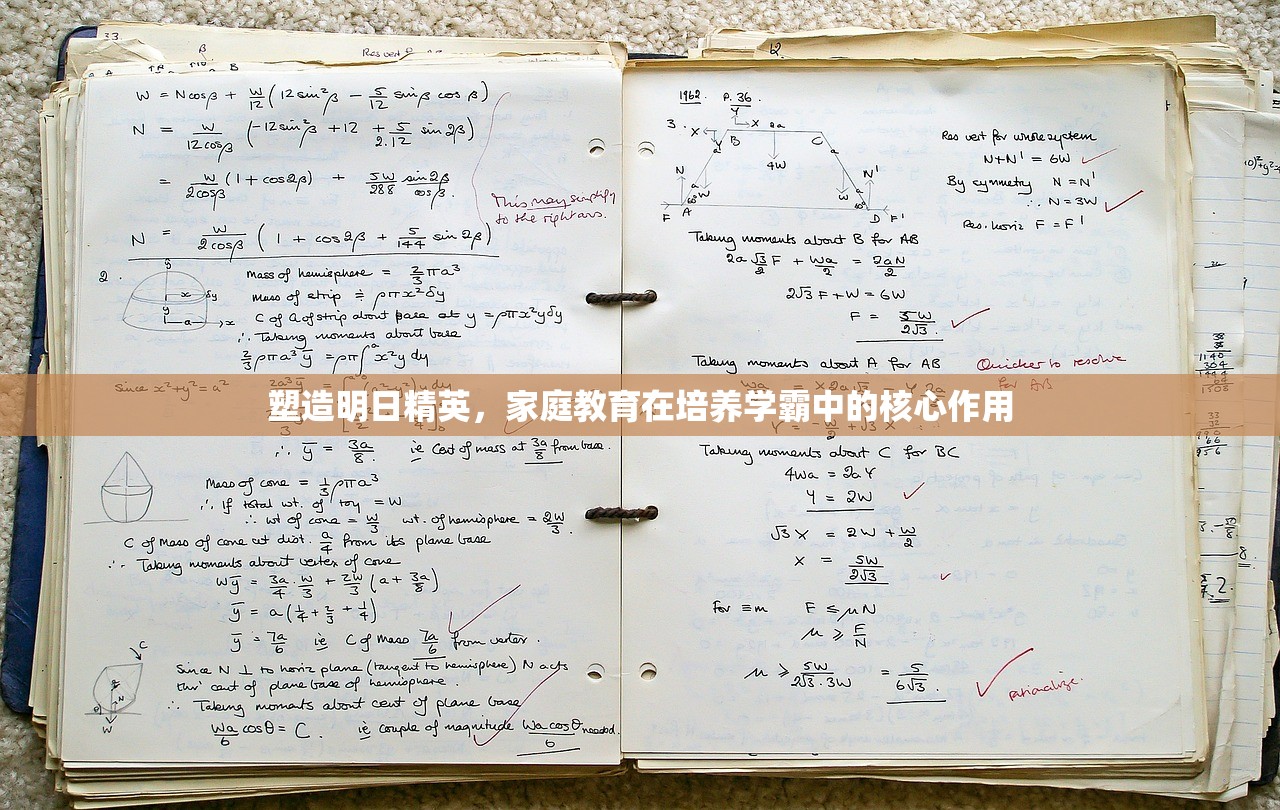 33
β
Res vert
W = N cos β + W/12 (12 sin² β − 5/12 sin β cos β)
N = W/12 cos β (−12 sin² β + 12 + 5/2.12 sin 2β)
= W/2 cos β (1 + cos 2β) + 5W/288 sin 2β/cos β.
This may simplify
to the right ans.
N = W/2 cos β (1 + cos 2β + 5/144 sin 2β)
2.
Mass of hemisphere = 2/3 πa³
mass of strip ≑ ρπx²δy
C of G of strip about base at y = ρπx²yδy
∴ Taking moments about base
2/3 ρπa³ ȳ = ρπ∫ x²y dy
Since x²+y² = a²
塑造明日精英，家庭教育在培养学霸中的核心作用
∴ ȳ = 3a/8. ie Cent of mass at 3a/8 from base.
Mass of cone = 1/3 ρπa³
∴ If total wt. of toy = W
∴ wt of cone = W/3 wt. of hemisphere = 2W/3.
C of Mass of cone at dist. a/4 from its plane base
∴ Taking moments about vertex of cone
Wȳ = 3a/4 · W/3 + 2W/3 (a + 3a/8)
ȳ = a(1/4 + 2/3 + 1/4)
ȳ = 7a/6 ie C of Mass 7a/6 from vertex.
Since N ⊥ to horiz plane (tangent to hemisphere) N acts
thro' cent of plane base of hemisphere.
∴ Taking moments about cent of plane base
Wa/6 cos θ = C. ie couple of magnitude Wa cos θ/6 needed.
1962. P. 36.
3.
Res vert for whole system
N+N' = 6W
By symmetry N = N'
∴ N = 3W
Res. horiz F = F'
Taking moments about B for AB
2a √3/2 F + Wa/2 = 2aN/2
2√3 F + W = 6W
F = 5W/2√3.
Taking moments about A for AB
Quicker to resolve
for AB
Taking moments about C for BC
4Wa = 2aY
Y = 2W
√3 X = 2W + W/2
X = 5W/2√3
For ≡m F ≤ μN
μ ≥ F/N
μ ≥ 5W/2√3.3W = 5/6√3.
rationalize.